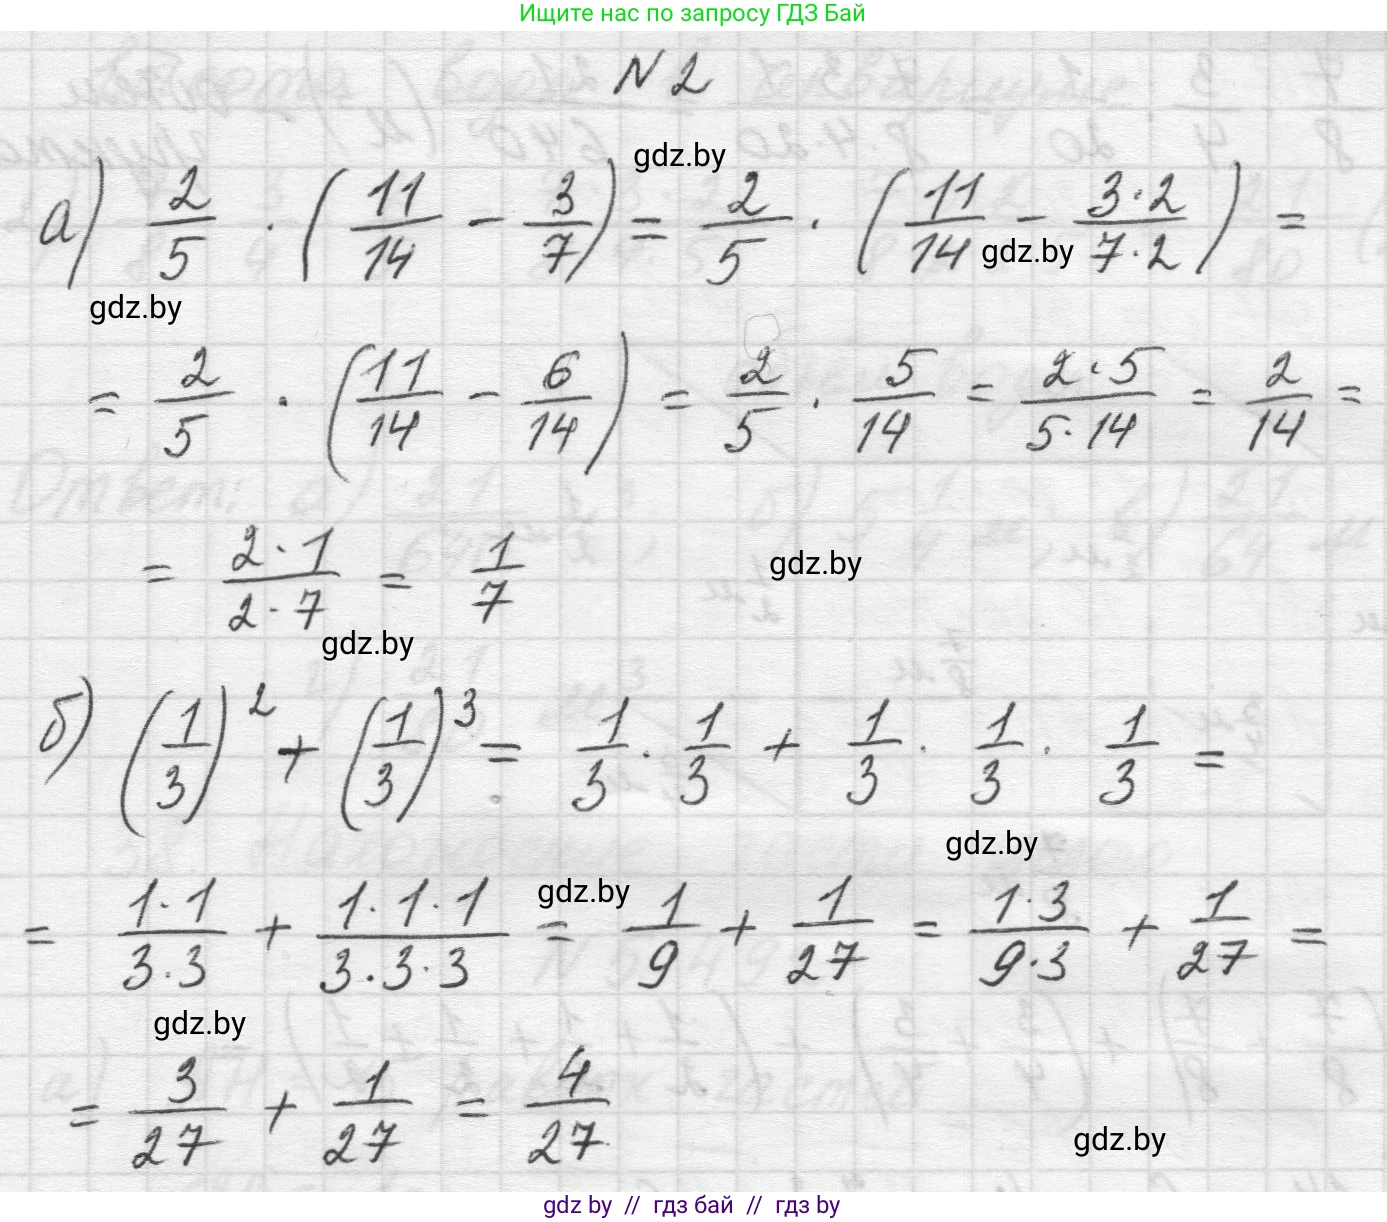 Ищите нас по запросу ГДЗ Бай
N 2
gdz.by
а) 2/5 · (11/14 − 3/7) = 2/5 · (11/14 − 3·2/7·2) =
gdz.by
gdz.by
= 2/5 · (11/14 − 6/14) = 2/5 · 5/14 = 2·5/5·14 = 2/14 =
= 2·1/2·7 = 1/7
gdz.by
gdz.by
б) (1/3)² + (1/3)³ = 1/3 · 1/3 + 1/3 · 1/3 · 1/3 =
gdz.by
gdz.by
= 1·1/3·3 + 1·1·1/3·3·3 = 1/9 + 1/27 = 1·3/9·3 + 1/27 =
gdz.by
= 3/27 + 1/27 = 4/27
gdz.by
gdz by // гдз бай // гдз by